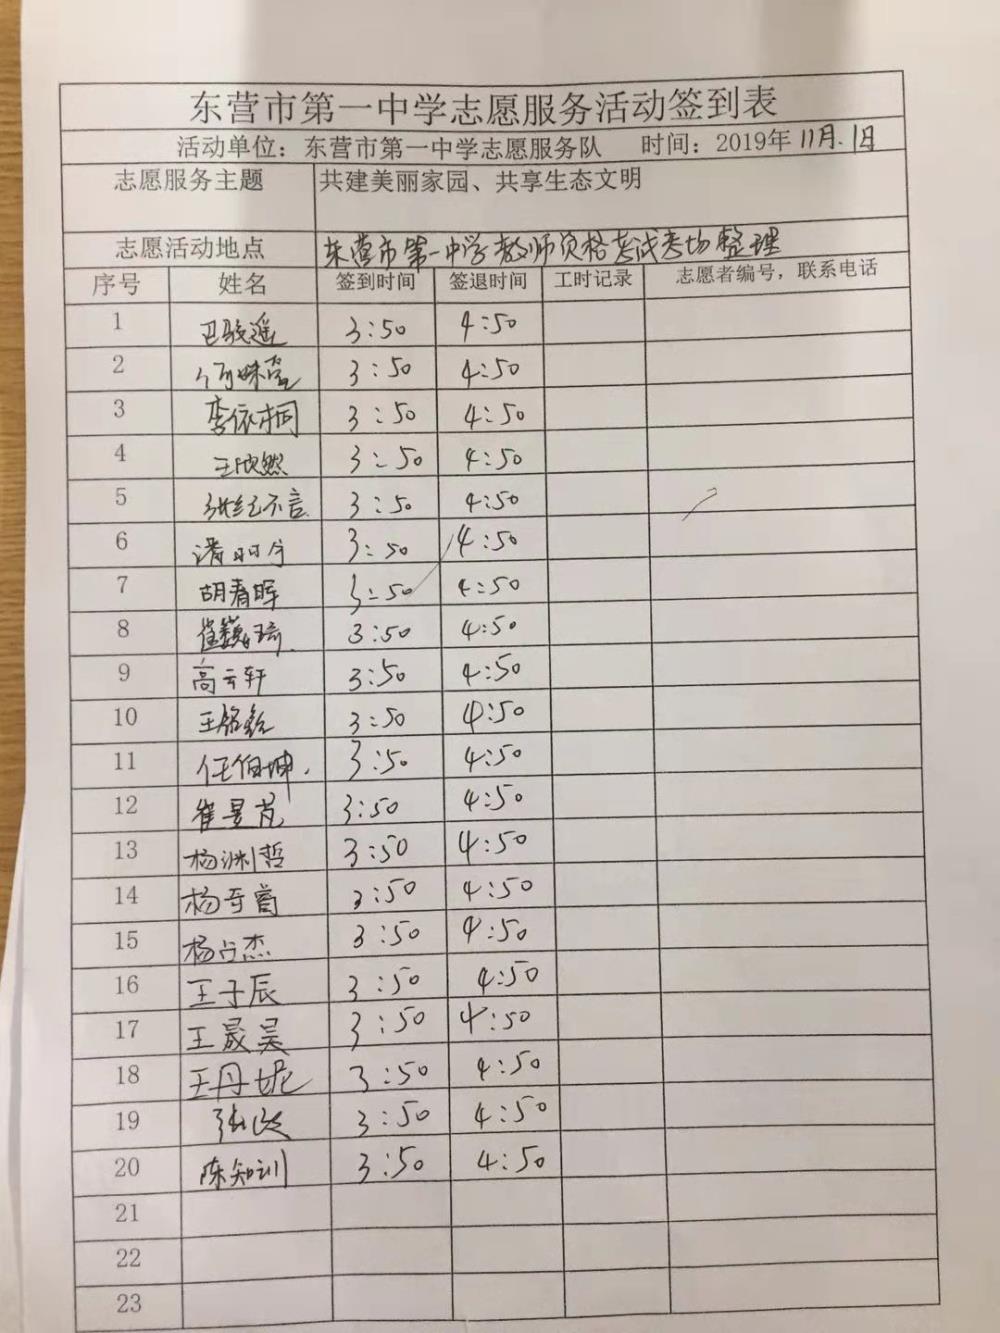 东营市第一中学志愿服务活动签到表
活动单位：东营市第一中学志愿服务队 时间：2019年11月.1日
志愿服务主题 共建美丽家园、共享生态文明
志愿活动地点 东营市第一中学教师资格考试考场整理
序号 姓名 签到时间 签退时间 工时记录 志愿者编号，联系电话
1 3:50 4:50
2 3:50 4:50
3 李依桐 3:50 4:50
4 王欣然 3:50 4:50
5 张纪不言 3:50 4:50
6 3:50 4:50
7 胡春晖 3:50 4:50
8 3:50 4:50
9 高云轩 3:50 4:50
10 王铭 3:50 4:50
11 任伯坤. 3:50 4:50
12 崔昱 3:50 4:50
13 杨渊哲 3:50 4:50
14 杨奇 3:50 4:50
15 杨占杰 3:50 4:50
16 王子辰 3:50 4:50
17 王晟昊 3:50 4:50
18 王丹妮 3:50 4:50
19 张 3:50 4:50
20 陈知训 3:50 4:50
21
22
23